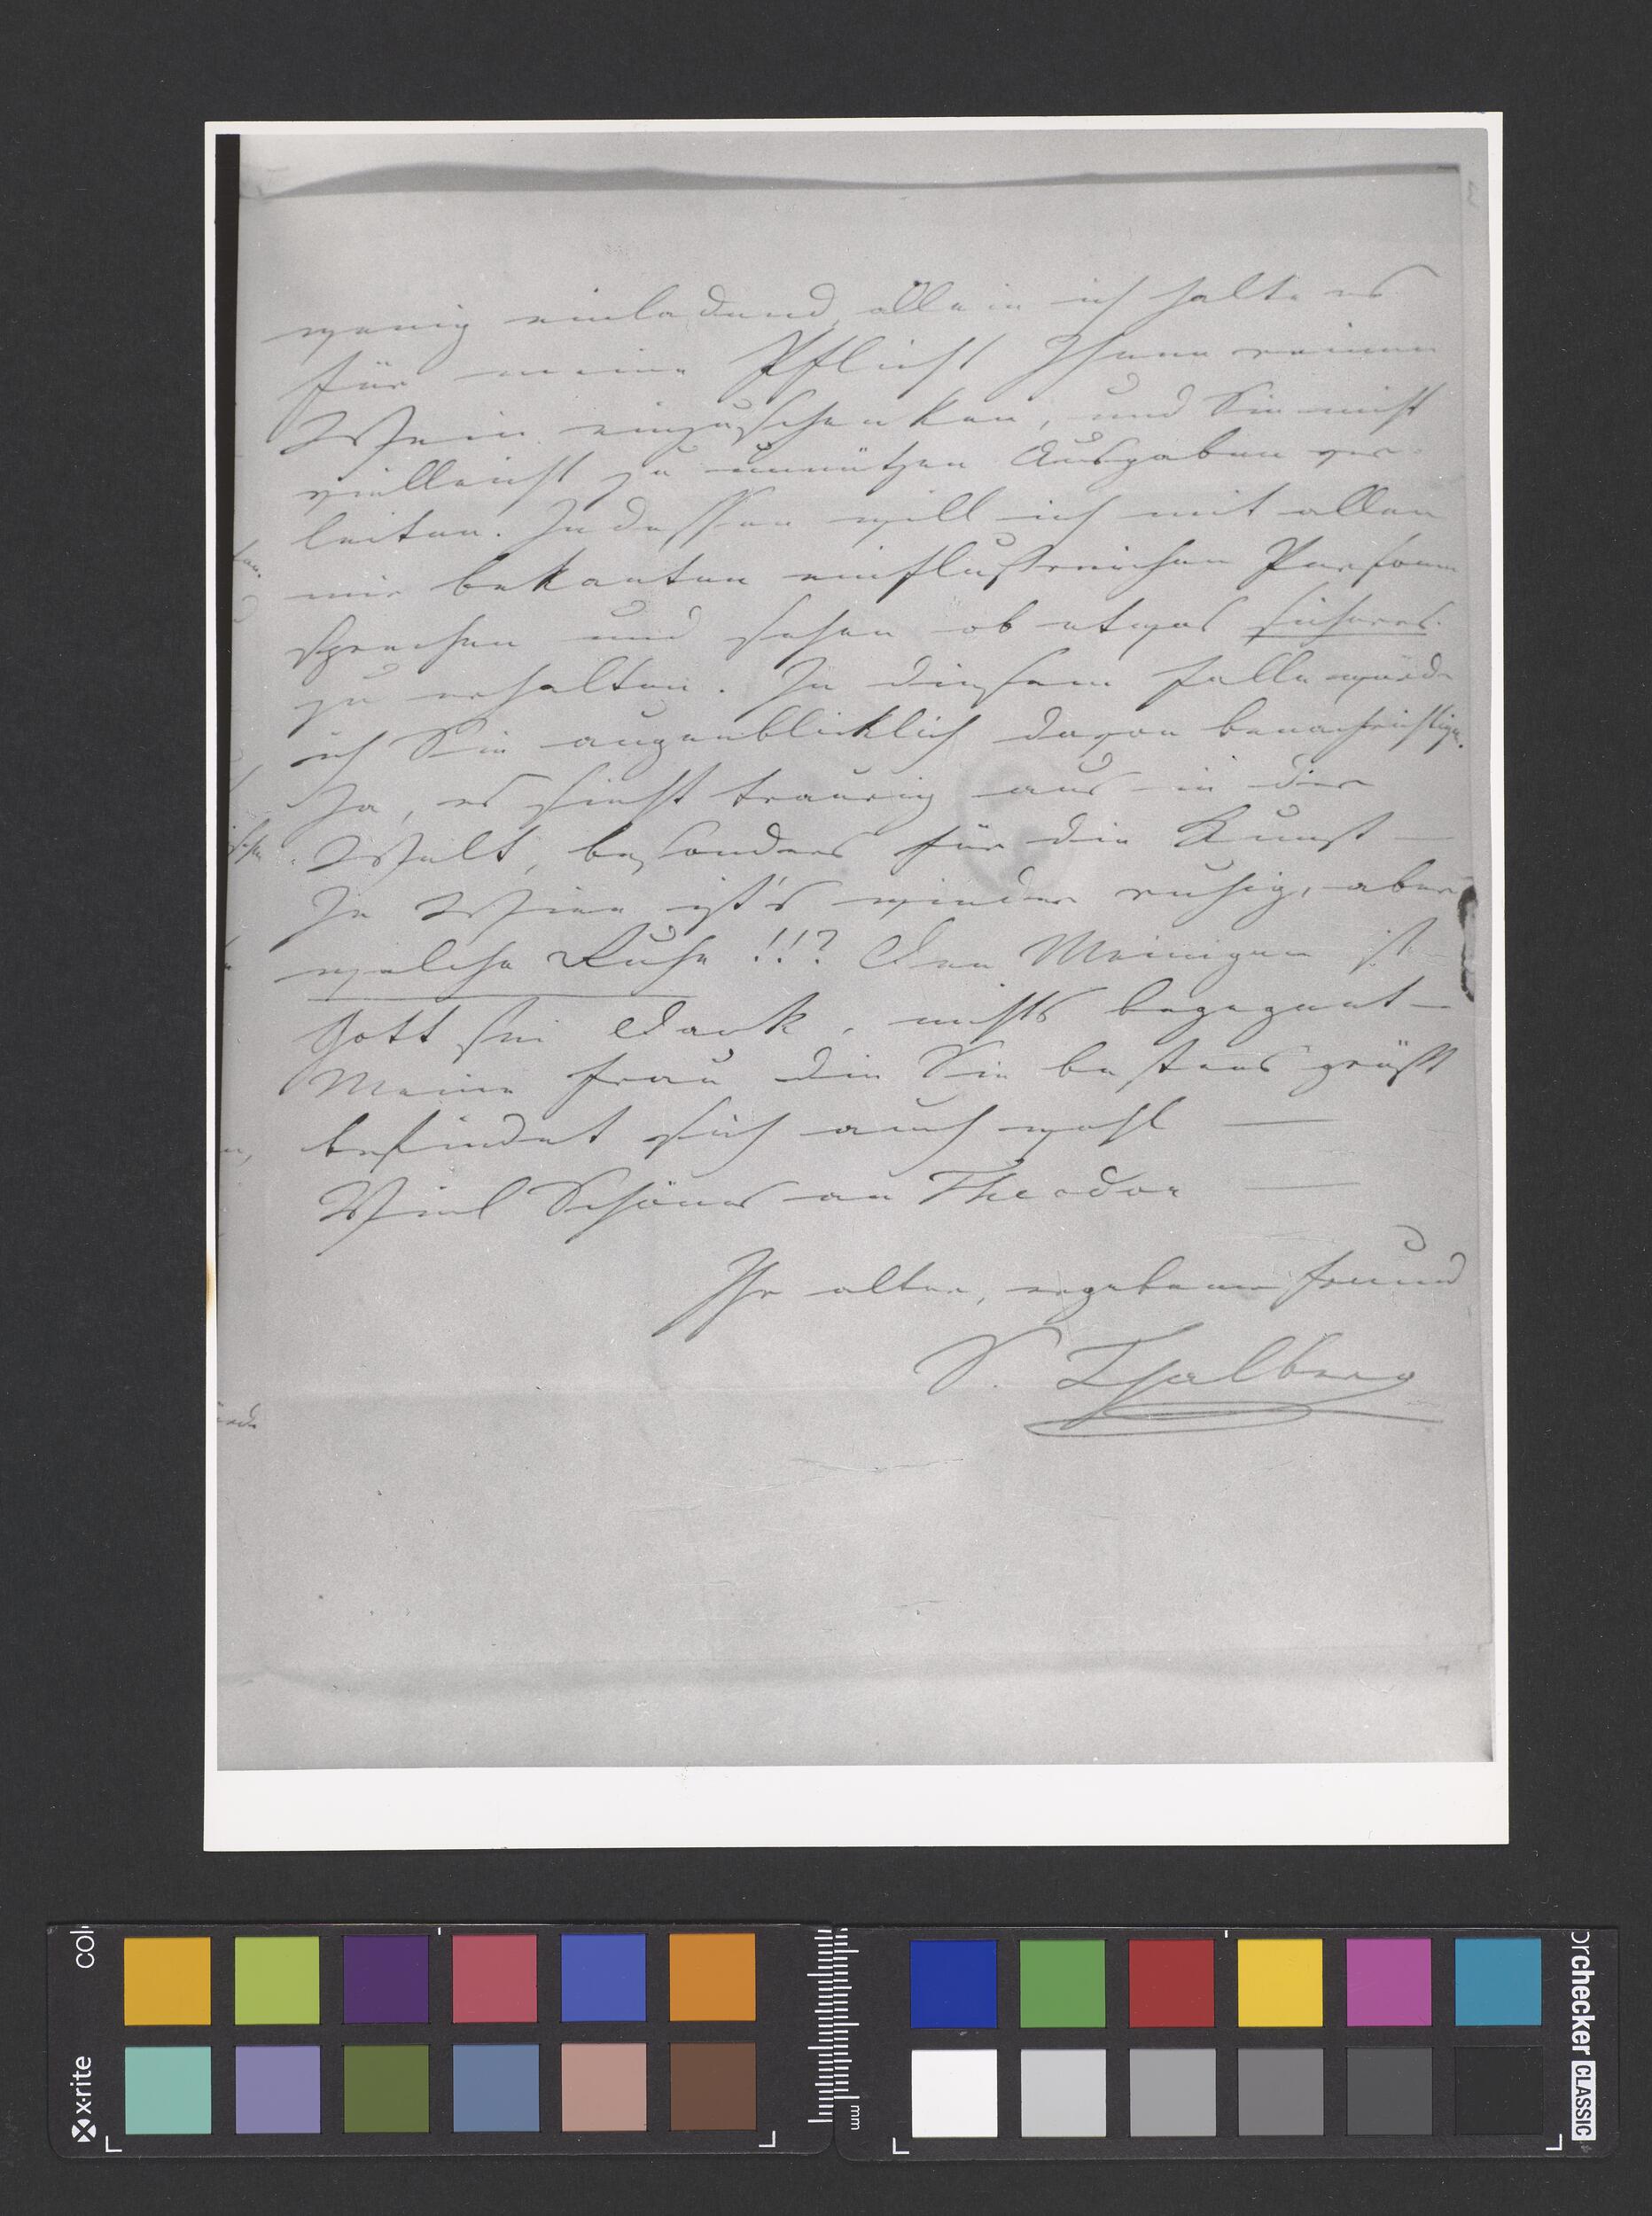 wenig einladend, allein ich halte es
für meine Pflicht Ihnen reinen
Wein einzuschenken, und Sie nicht
vielleicht zu unnützen Ausgaben ver-
leiten. Indessen will ich mit allen
mir bekanten einflußreichen Personen
sprechen und sehen ob etwas sicheres
zu erhalten. In diesem Falle würde
ich Sie augenblicklich davon benachrichtigen.
Ja, es sieht traurig aus in der
Welt, besonders für die Kunst —
In Wien ist's wieder ruhig, aber
welche Ruhe !!? Den Meinigen ist
Gott sei Dank, nichts begegnet —
Meine Frau die Sie bestens grüßt
befindet sich auch wohl —
Viel Schönes an Theodor —
Ihr alter, ergebener Freund
S. Thalberg
x-rite
colorchecker CLASSIC
mm